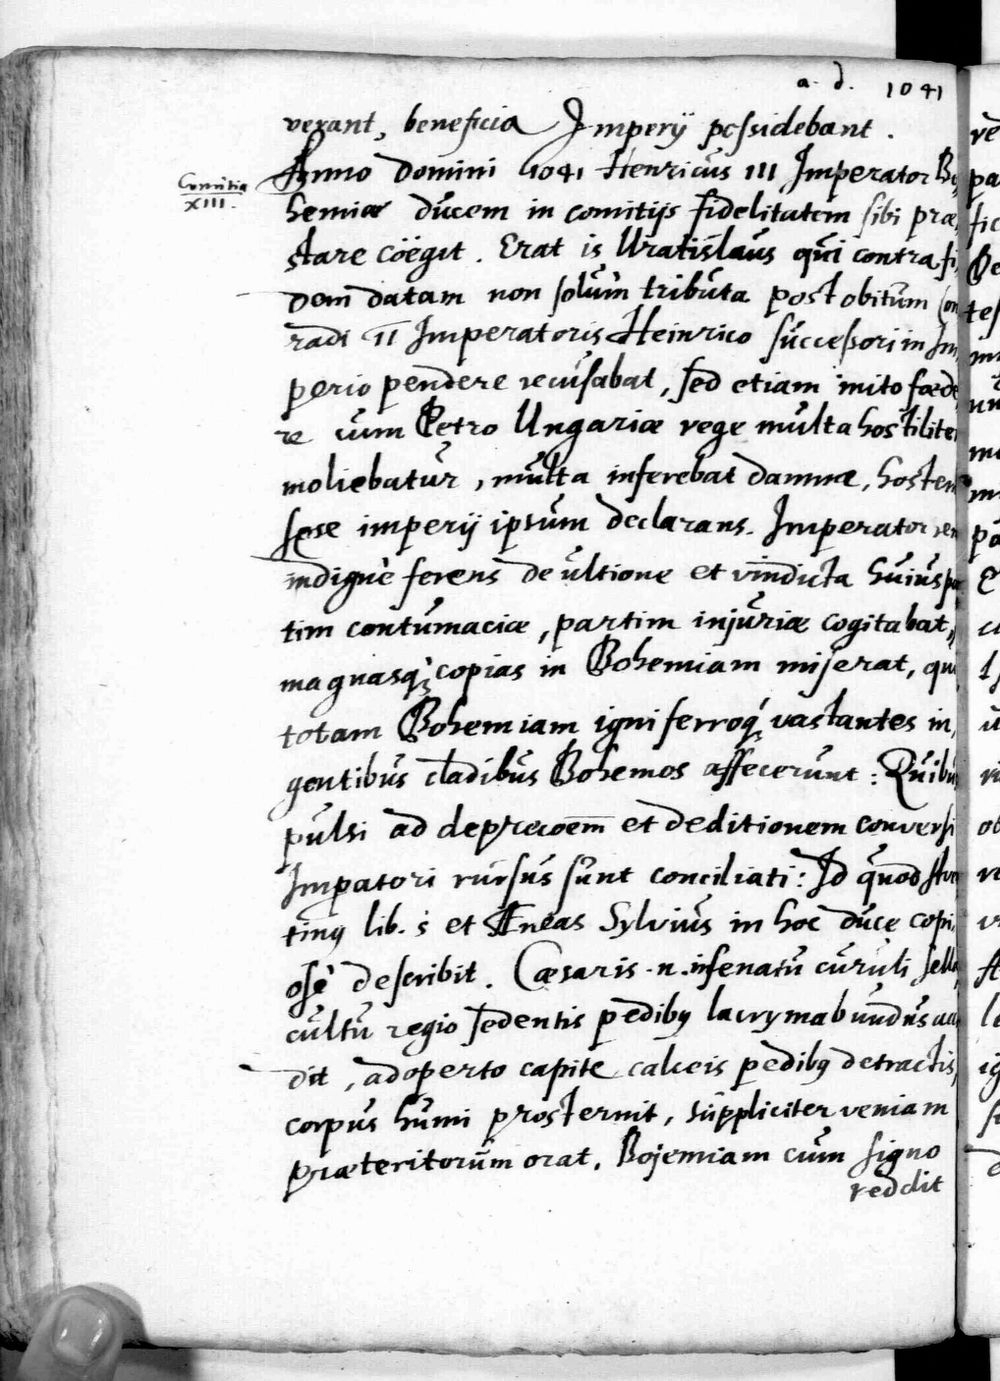 a. d. 1041
verant, beneficia Imperij possidebant.
Anno Domini 1041 Henricus III Imperator Bo
Comitia
XIII.
hemiæ ducem in comitijs fidelitatem sibi præ,
stare cöegit. Erat is Uratislaus qui contra fi,
dem datam non solum tributa post obitum Con
radi II Imperatoris Heinrico successori in Im
perio pendere recusabat, sed etiam inito fœde
re cum Petro Ungariæ rege multa hostiliter
moliebatur, multa inferebat damna, hostem
sese imperij ipsum declarans. Imperator rem
indignè ferens de ultione et vindicta huius par
tim contumaciæ, partim injuriæ cogitabat,
magnasq; copias in Bohemiam miserat, quæ
totam Bohemiam igni ferroq; vastantes in,
gentibus cladibus Bohemos affecerunt: Quibus
pulsi ad deprecoem et deditionem conversi
Impatori rursus sunt conciliati: Id quod
lib. i et Æneas Sylvius in hoc duce copi,
osè describit. Cæsaris .n. in senatu curuli sella,
cultu regio sedentis pedibq lacrymabundus acci
dit, adoperto capite calceis pedibq detractis,
corpus humi prosternit, suppliciter veniam
præteritorum orat. Bojemiam cum signo
reddit